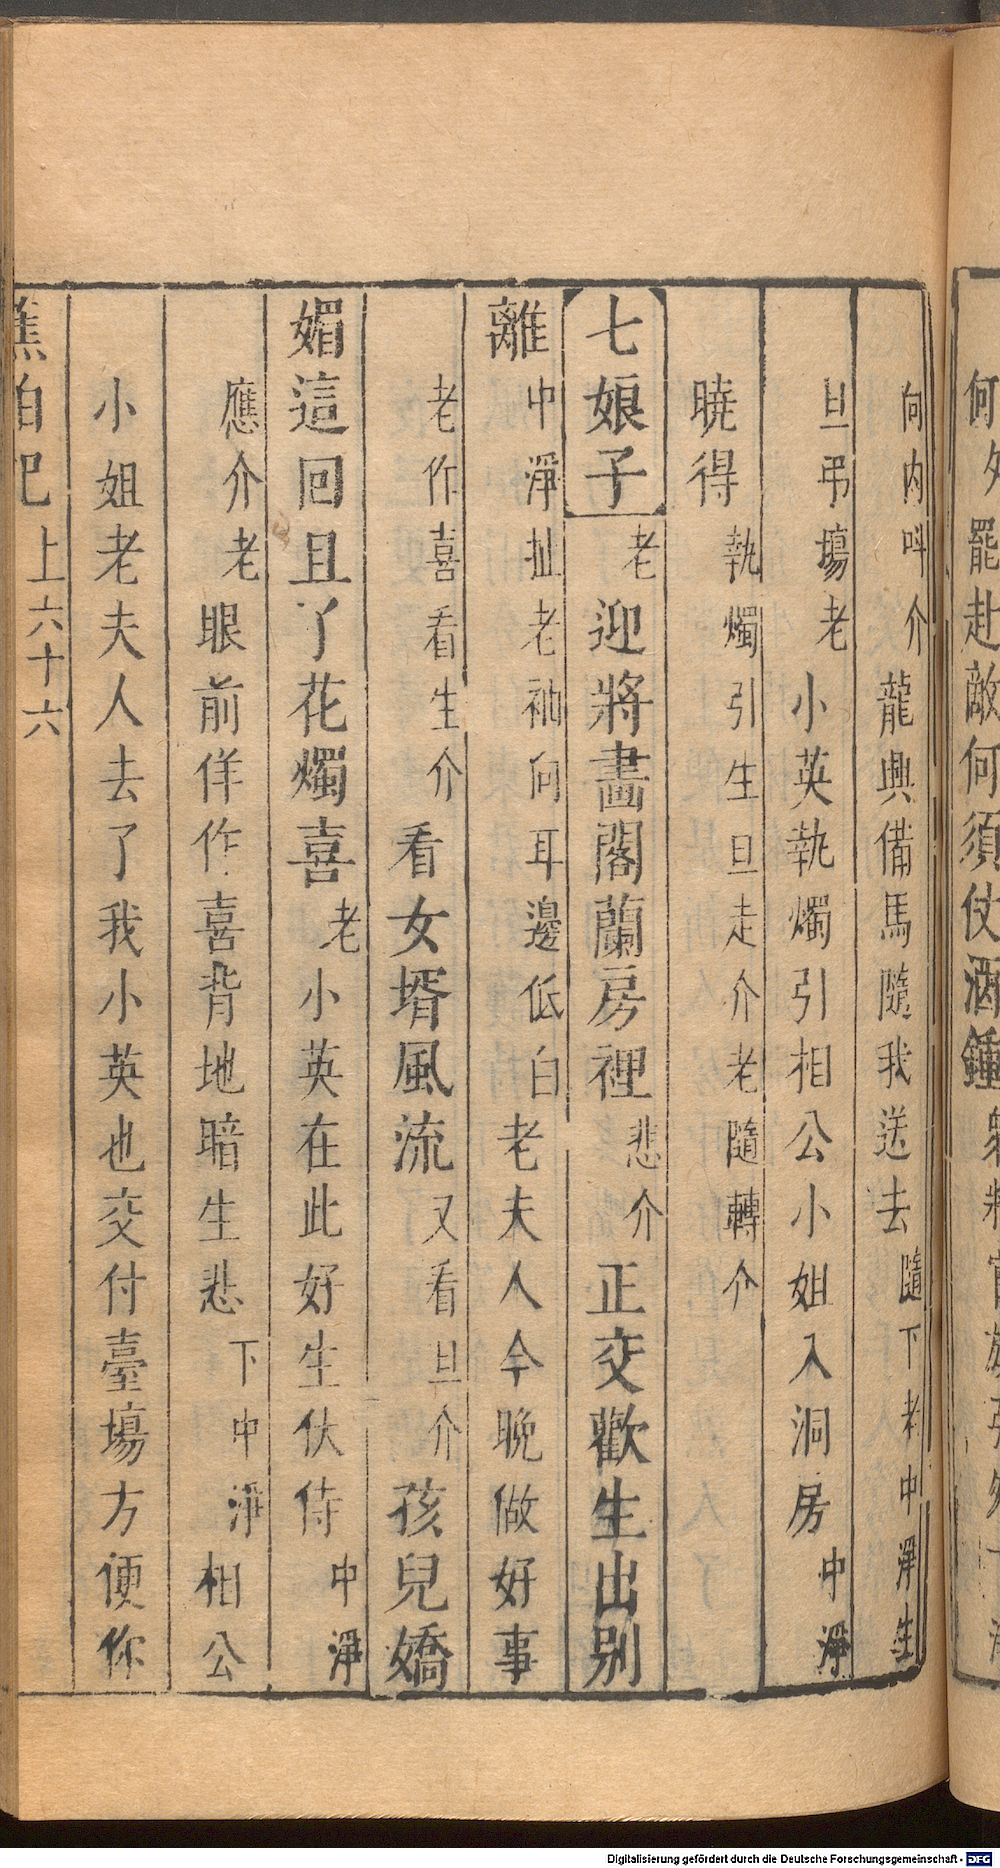 何 罷赴敵何須仗酒鍾
向内呌介龍興備馬隨我送去隨下老中淨生
旦弔塲老小英執燭引相公小姐入洞房中淨
曉得執燭引生旦走介老隨轉介
七娘子老迎將畫閣蘭房裡悲介正交歡生出别
離中淨扯老袖向耳邊低白老夫人今晚做好事
老作喜看生介看女壻風流又看旦介孩兒嬌
媚這回且了花燭喜老小英在此好生伏侍中淨
應介老眼前佯作喜背地暗生悲下中淨相公
小姐老夫人去了我小英也交付臺塲方便你
蕉帕記 上六十六
Digitalisierung gefördert durch die Deutsche Forschungsgemeinschaft - DFG